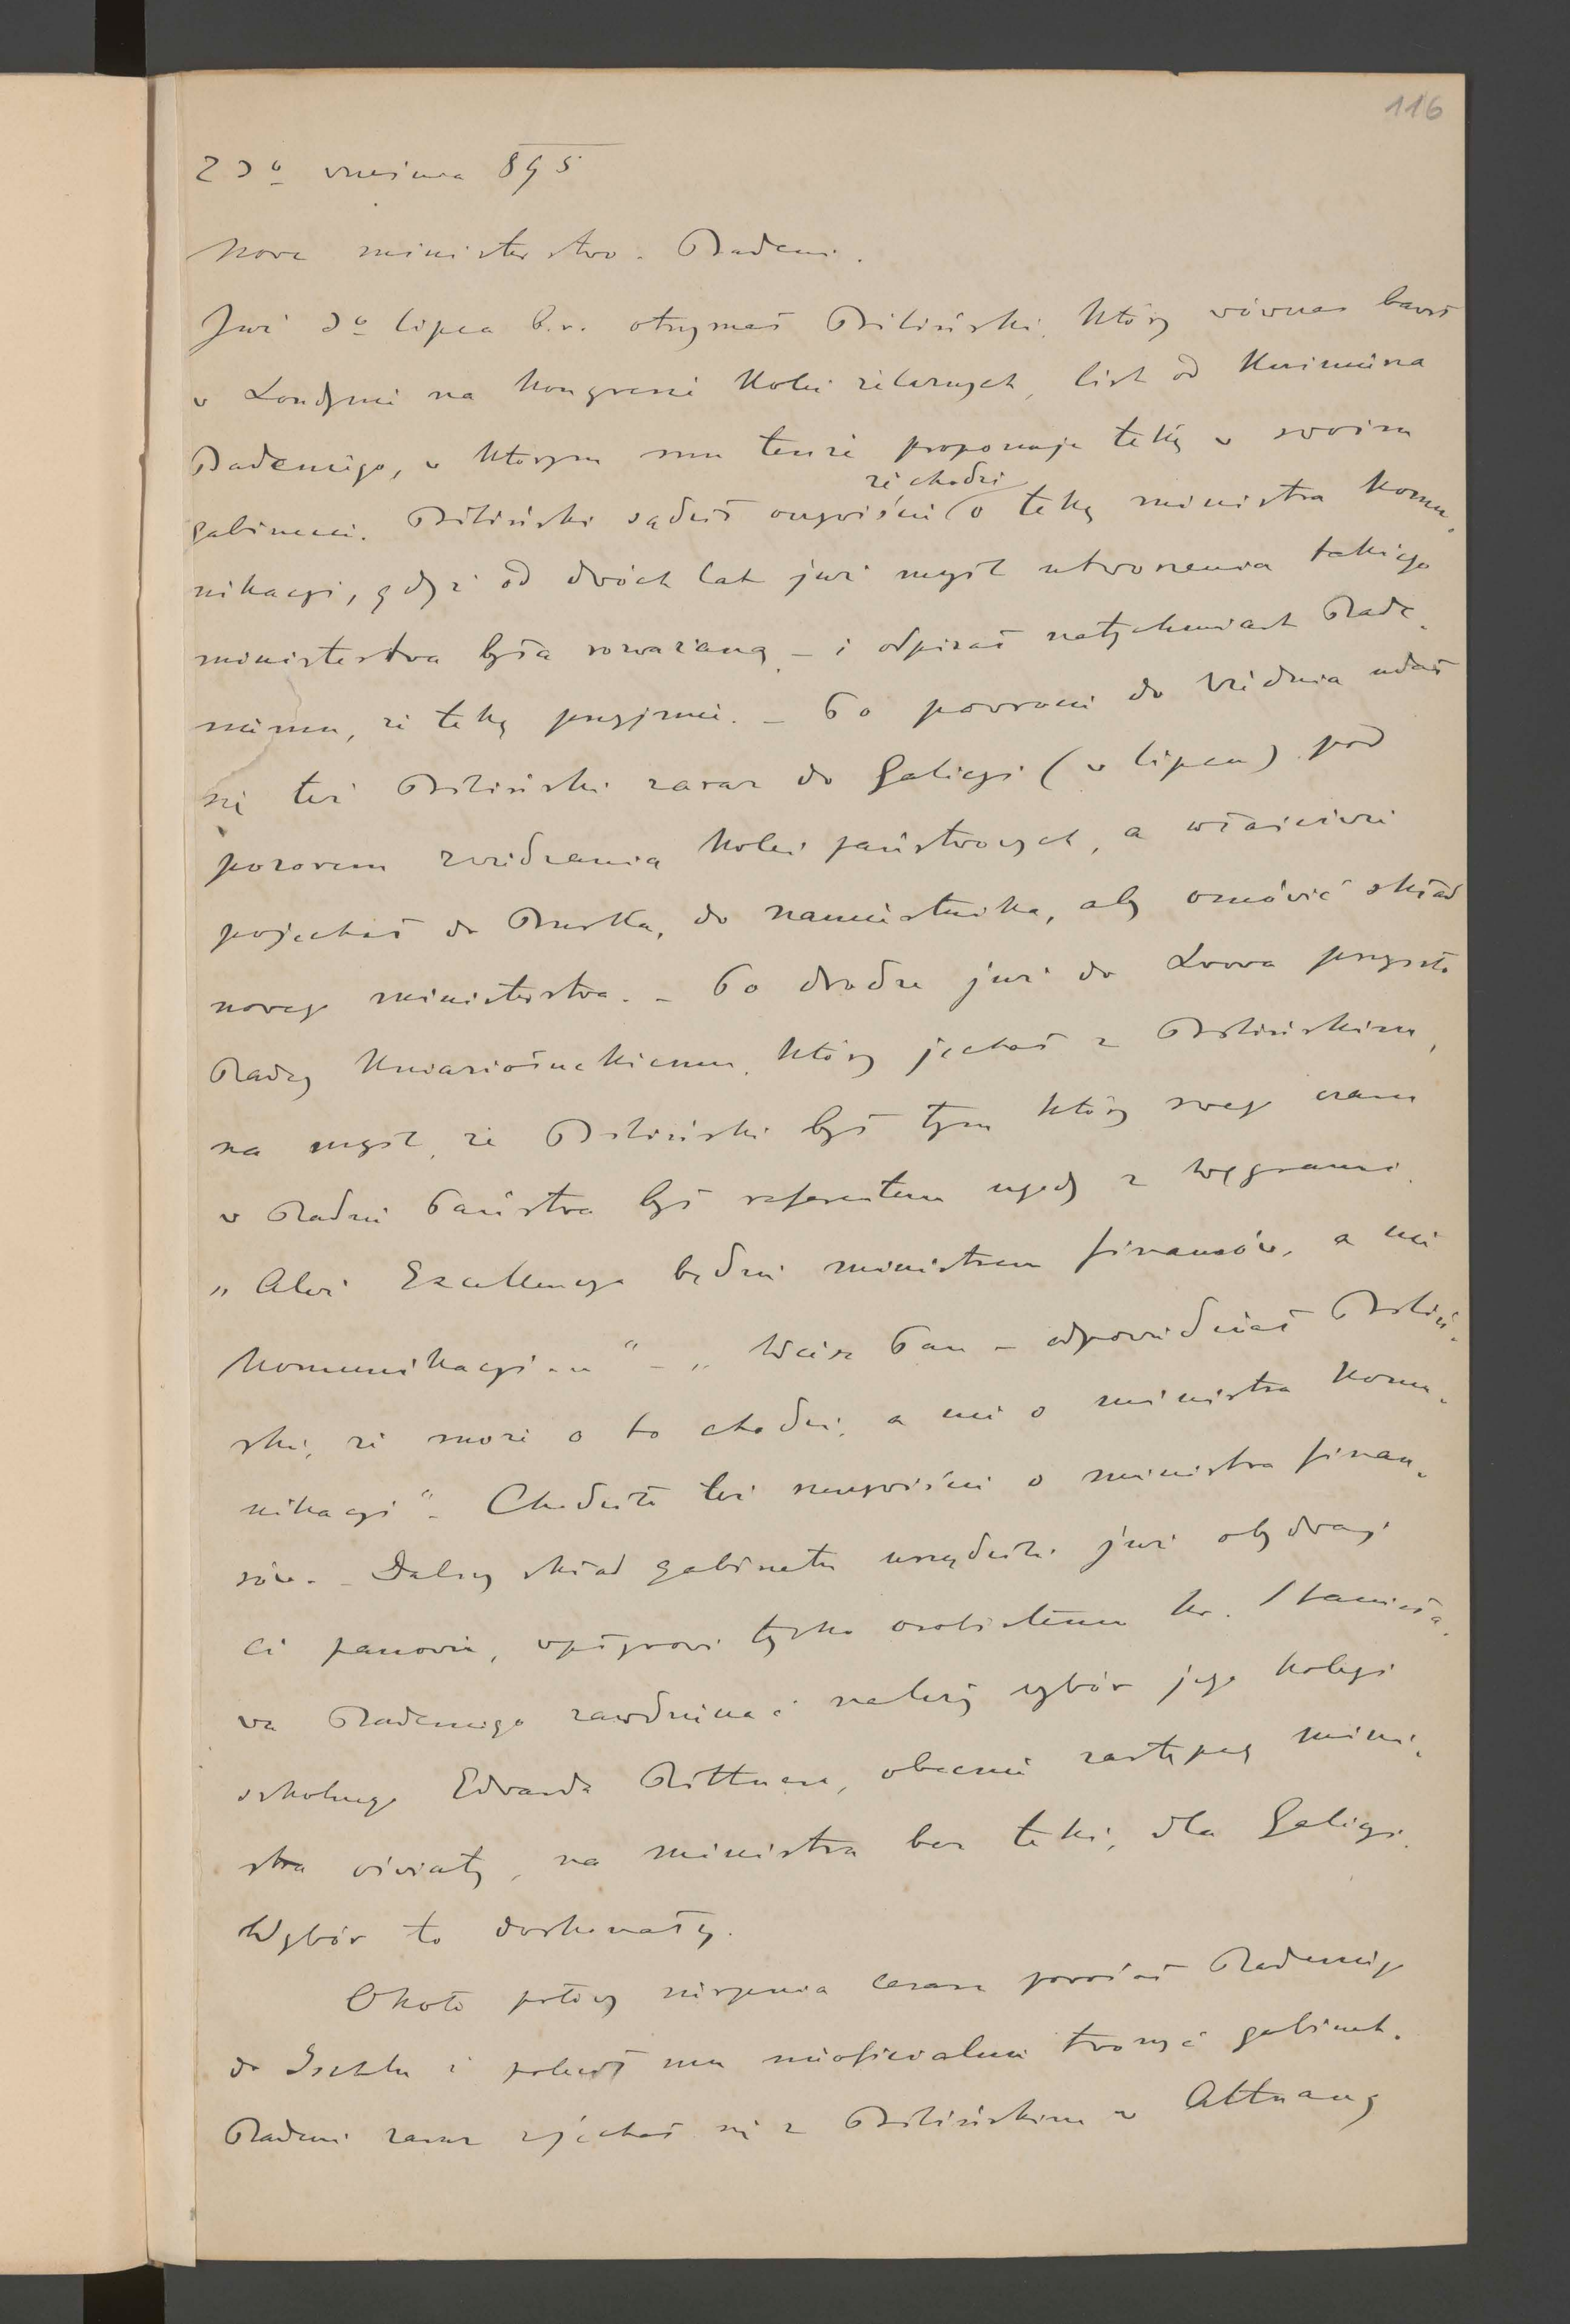 116
23º września 895
Nowe ministerstwo. Badeni.
Już 3º lipca b.r. otrzymał Biliński, który wówczas bawił
w Londynie na kongresie kolei żelaznych, list od Kazimierza
Badeniego, w którym mu tenże proponuje tekę w swoim
gabinecie. Biliński sądził oczywiście że chodzi o tekę ministra komu-
nikacyi, gdyż od dwóch lat już myśl utworzenia takiego
ministerstwa była rozważaną – i odpisał natychmiast Bade-
niemu, że tekę przyjmie. – Po powrocie do Wiednia udał
się też Biliński zaraz do Galicyi (w lipcu) pod
pozorem zwiedzania kolei państwowych, a właściwie
pojechał do Buska, do namiestnika, aby omówić skład
nowego ministerstwa. – Po drodze już do Lwowa przyszło
Radcy Kniaziołuckiemu, który jechał z Bilińskim,
na myśl, że Biliński był tym który swego czasu
w Radzie Państwa był referentem ugody z Węgrami.
„Ależ Excellencya będzie ministrem finansów, a nie
komunikacyi..." – „Wiesz Pan – odpowiedział Biliń-
ski, że może o to chodzi, a nie o ministra komu-
nikacyi". Chodziło też rzeczywiście o ministra finan-
sów. – Dalszy skład gabinetu urządzili już obydwaj
ci panowie, wpływowi tylko osobistemu hr. Stanisła-
wa Badeniego zawdzięczać należy wybór jego kolegi
szkolnego Edwarda Rittnera, obecnie zastępcy mini-
stra oświaty, na ministra bez teki, dla Galicyi.
Wybór to doskonały.
Około połowy sierpnia cesarz powołał Badeniego
do Ischlu i polecił mu nieoficialnie tworzyć gabinet.
Badeni zaraz zjechał się z Bilińskim w Attnang